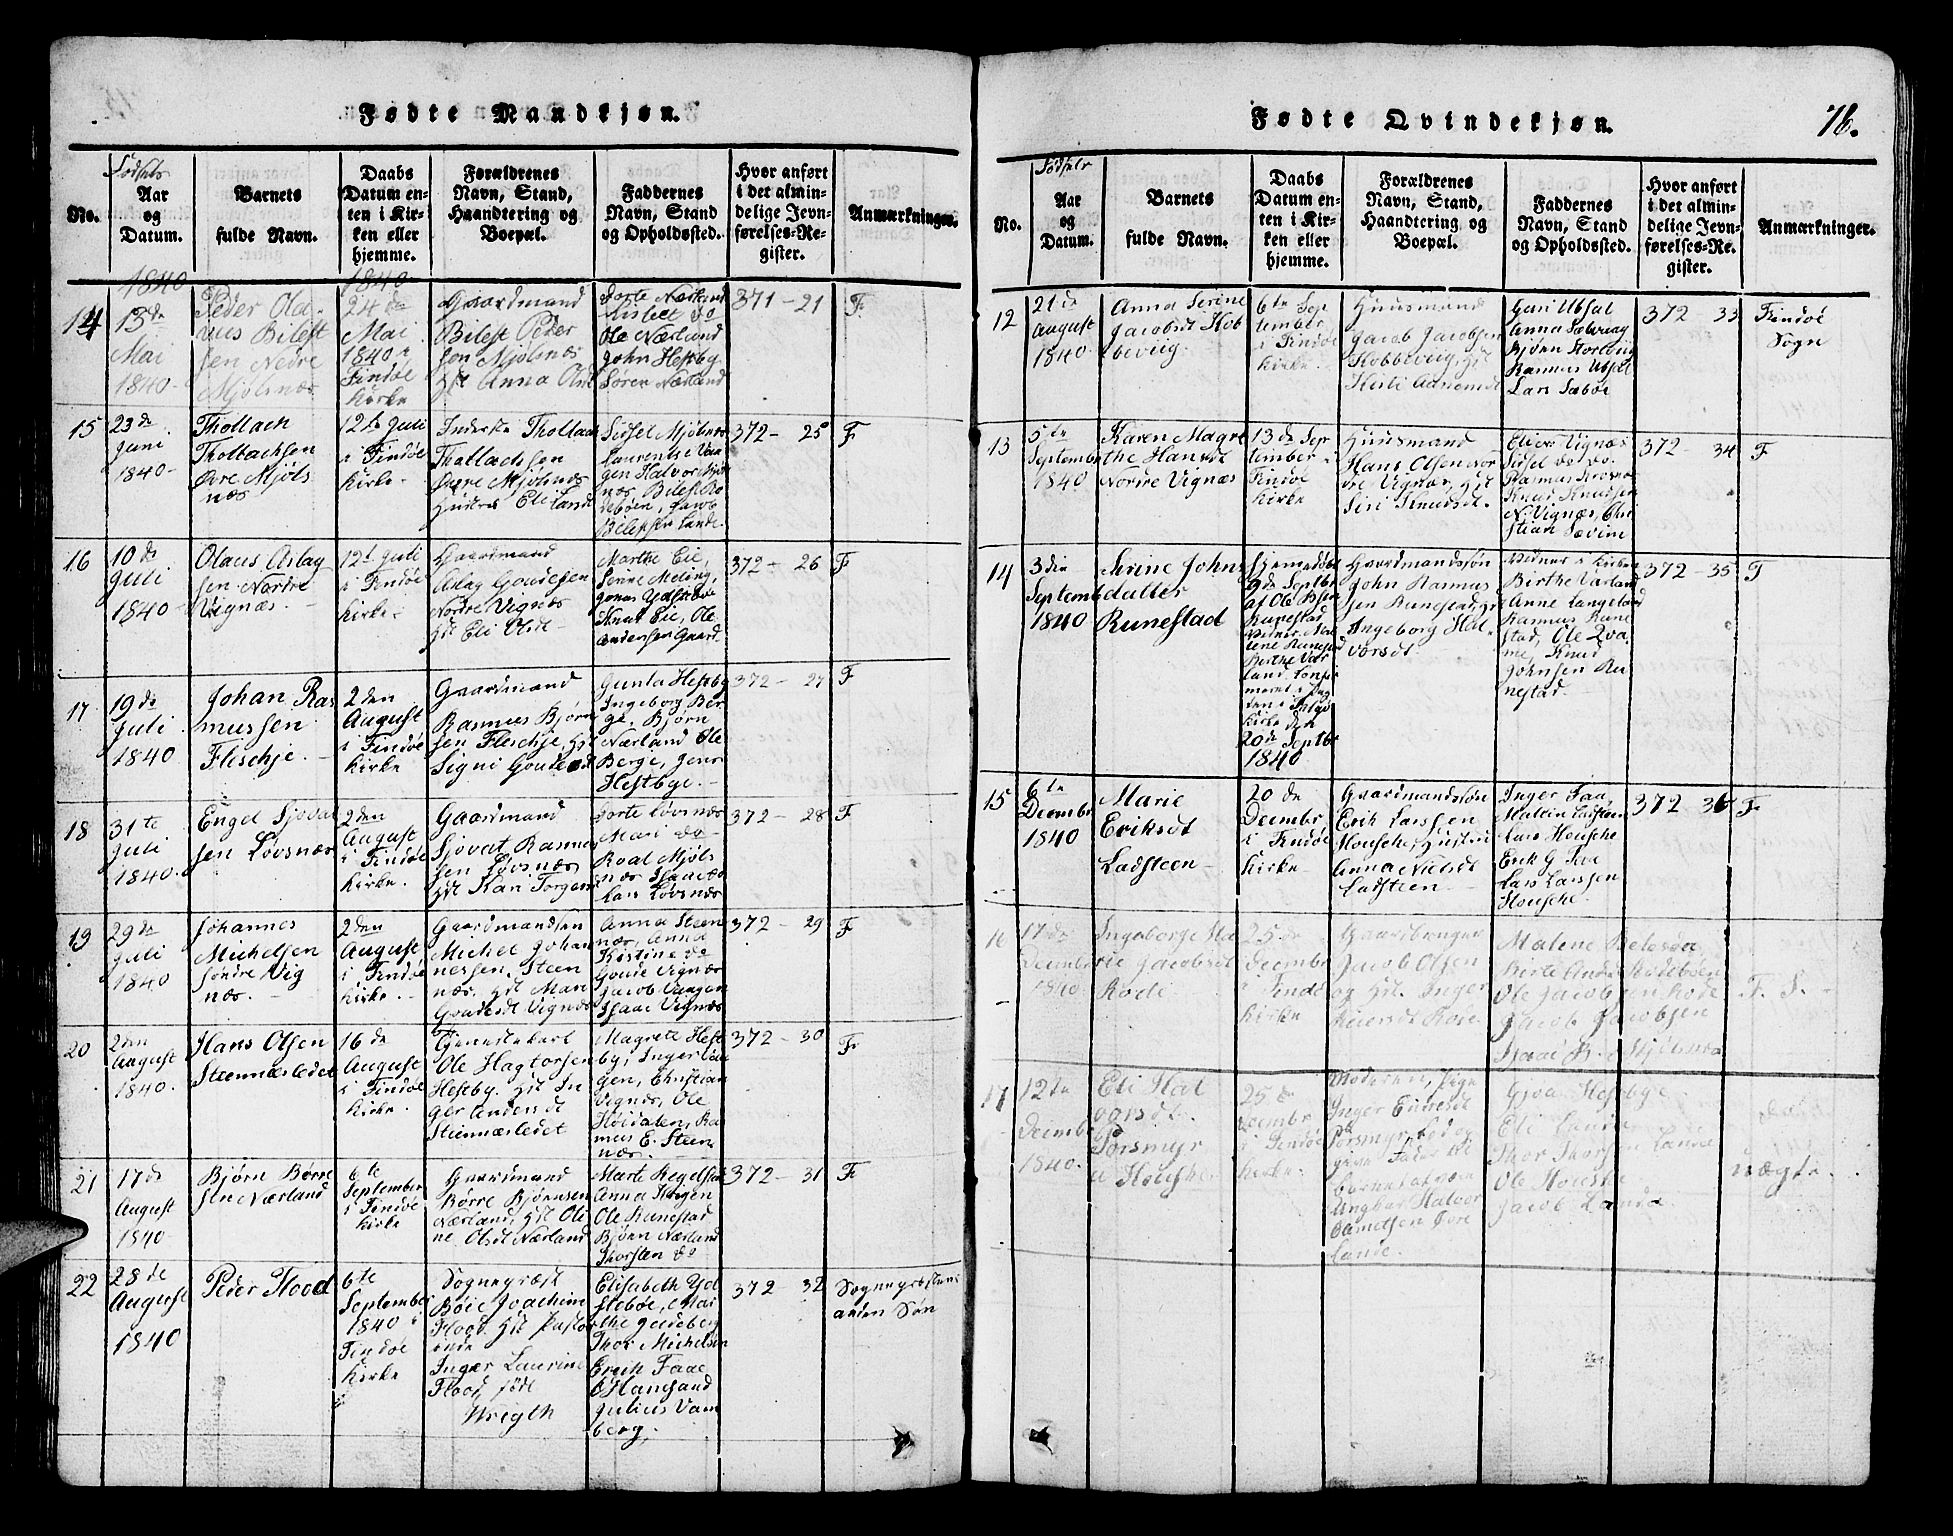 Fødte Mandkjøn.
No.
Fødsels
Aar
og
Datum.
Barnets
fulde Navn.
Daabs
Datum en-
ten i Kir-
ken eller
hjemme.
Forældrenes
Navn, Stand,
Haandtering og
Boepæl.
Faddernes
Navn, Stand
og Opholdssted.
Hvor anført
i det almin-
delige Jevn-
førelses-Re-
gister.
Anmærkninger.
1840
1840
14
13de
Mai
1840
Peder Ola-
us Bilest
sen Nedre
Mjølsnæs
24de
Mai
1840 i
Findøe
Kirke
Gaardmand
Bilest Peder
sen Mjølsnæs
Hst Anna Olsdt
Dorte Nærland
Lisbet do
Ole Nærland
John Hestby
Sören Nærland
371 - 21
F.
15
23de
Juni
1840
Thollach
Thollachsen
Øvre Mjöls
næs
12te Juli
i Findöe
Kirke
Inderste Thollach
Thollachsen
Øvre Mjölsnæs
Hustrue Eli Larsdt
Sidsel Mjölsnæs
Laurentse Vaa
gen Halvor Mjöls
næs, Bilest Ro
debøen, Jacob
Bilestsen Lande
372 - 25
F
16
10de
Juli
1840
Olaus Aslag
sen Nordre
Vignæs.
12te Juli
i Findöe
Kirke
Gaardmand
Aslag Goudesen
Nordre Vignæs
Hst Eli Olsdt
Marthe Eie,
Senne Meling,
Jonas Ydstebøe
Knut Eie, Ole
Andersen Gaard
372 - 26
F
17
19de
Juli
1840
Johan Ras
mussen
Fleschje
2den
August
i Findöe
Kirke
Gaardmand
Rasmus Bjørn
sen Fleschje, Hst
Signi Goudesdt
Gunla Hestby
Ingeborg Ber
ge, Bjørn
Nærland Ole
Berge, Jens
Hestbye.
372 - 27
F
18
31te
Juli
1840
Engel Sjovat
sen Løvsnæs
2den
August
i Findöe
Kirke.
Gaardmand
Sjovat Rasmus
sen Løvsnæs
Hst Kari Torgers
Dorte Løvsnæs
Mari do
Roal Mjöls
næs Isaac
Lars Løvsnæs
372 - 28
F
19
29de
Juli
1840
Johannes
Michelsen
Søndre Vig
næs.
2den
August
i Findöe
Kirke.
Gaardmandsøn
Michel Johan
nessen. Steen
næs. Hst Mari
Goudesdt Vignæs
Anna Steen
næs, Anna
Kistine do
Goude Vignæs
Jacob Vaagen
Isaac Vignæs
372 - 29
F
20
2den
August
1840.
Hans Olsen
Steennæsledet
16de
August
i Findöe
Kirke.
Tjenestekarl
Ole Hagtorsen
Hestby. Hst In
ger Andersdt
Steennæsledet
Magrete Hest
by, Inger Vaa
gen, Christian
Vignæs, Ole
Høidalen, Ras
mus E. Steen
næs.
372 - 30
F
21
17de
August
1840
Bjørn Børre
sen Nærland
6te
September
i Findöe
Kirke
Gaardmand
Børre Bjørensen
Nærland, Hst Ole
ne Olsdt Nærland
Marte Regelstad
Anna Hagen
Ole Runestad
Bjørn Nærland
Thorsten do
372 - 31
F
22
28de
August
1840
Peder Flood
6te
September
1840 i
Findöe
Kirke
Sognepræst
Böie Joachim
Flood. Hst Pastor
inde
Inger Laurine
Flood, føde
Wregth
Elisabeth Yd
stebøe, Mar
the Judeberg
Thor Michelsen
Erich Faae
C Hamsand
Julius Vam
berg.
372 32
Sognepræstens
anden Søn
Fødte Qvindekjøn.
76.
No.
Fødsels
Aar
og
Datum.
Barnets
fulde Navn.
Daabs
Datum en-
ten i Kir-
ken eller
hjemme.
Forældrenes
Navn, Stand,
Haandtering og
Boepæl.
Faddernes
Navn, Stand
og Opholdssted.
Hvor anført
i det almin-
delige Jevn-
førelses-Re-
gister.
Anmærkninger.
12
21de
August
1840
Anna Serine
Jacobsdt Kob
beviig
6te Sep
tember
i Findöe
Kirke.
Huusmand
Jacob Jacobsen
Kobbeviig, Hst
Kisti Aanensdt
Guri Utsal
Anna Solveug
Bjørn Storeviig
Rasmus Utsal
Lars Sæböe
372 33
Findöe
Sogn
13
5te
September
1840
Karen Magre
the Hansdt
Nordre Vignæs
13de Sep
tember i
Findöe
Kirke
Huusmand
Hans Olsen Nor
dre Vignæs, Hst
Siri Knudsdt.
Elievo Vignæs
Sidsel do do.
Rasmus
Knud Knudsen
N. Vignæs, Chri
stian Sævim
372 - 34
F
14
3die
Septemb
1840
Serine Johns
datter
Runestad
Hjemmedøbt
9de Septbr
af Ole Bjsen
Runestad
Vidner Ma
lene Runestad
Berthe Var
land Confir
meret i Dag
den i Findø
Kirke den
20de Septbr
1840
Gaardmandssøn
John Rasmus
sen Runestad, Hst
Ingeborg Hal-
vorsdt.
Vidner i Kirken
Birthe Varland
Anne Langeland
Rasmus Rune
stad, Ole Qva
me, Knud
Johnsen Ru
nestad
372 - 35
F
15
6te
Decembr
1840
Marie
Eriksdt
Ladsteen
20de
Decembr
i Findöe
Kirke
Gaardmandssøn
Erik Larssen
Housche, Hustru
Anna Nielsdt
Ladsteen
Inger Faa
Malein Ladsteen
Lars Housche
Erik G Faae
Lars Larssen
Housche.
372 36
F
16
17de
Decembr
1840
Ingeborge Ma
rie Jacobsdt
Rode
25de
Decembr
i Findö
Kirke
Gaardbruger
Jacob Olsen
og Hst. Inger
Rode
Malene
Kirte Ande Rodebøen
Ole Jacobsen Rode
Jacob Jacobsen
Isaac B. Mjölsnæs
F. S.
17
12te
Decembr
1840.
Eli Hal
vorsdt.
Torsmyr
u Housche
25de
Decembr
i Findöe
Kirke.
Moderen, Pige
Inger Enersdt
Torsmyr Led og
give Fader til
barnet at være
Ungkar Halvor
Samelsen Øvre
Lande.
Gjoa Hestbye
Eli Lande
Thor Thorsen Lande
Ole Housche
Jacob Lande
uægte.